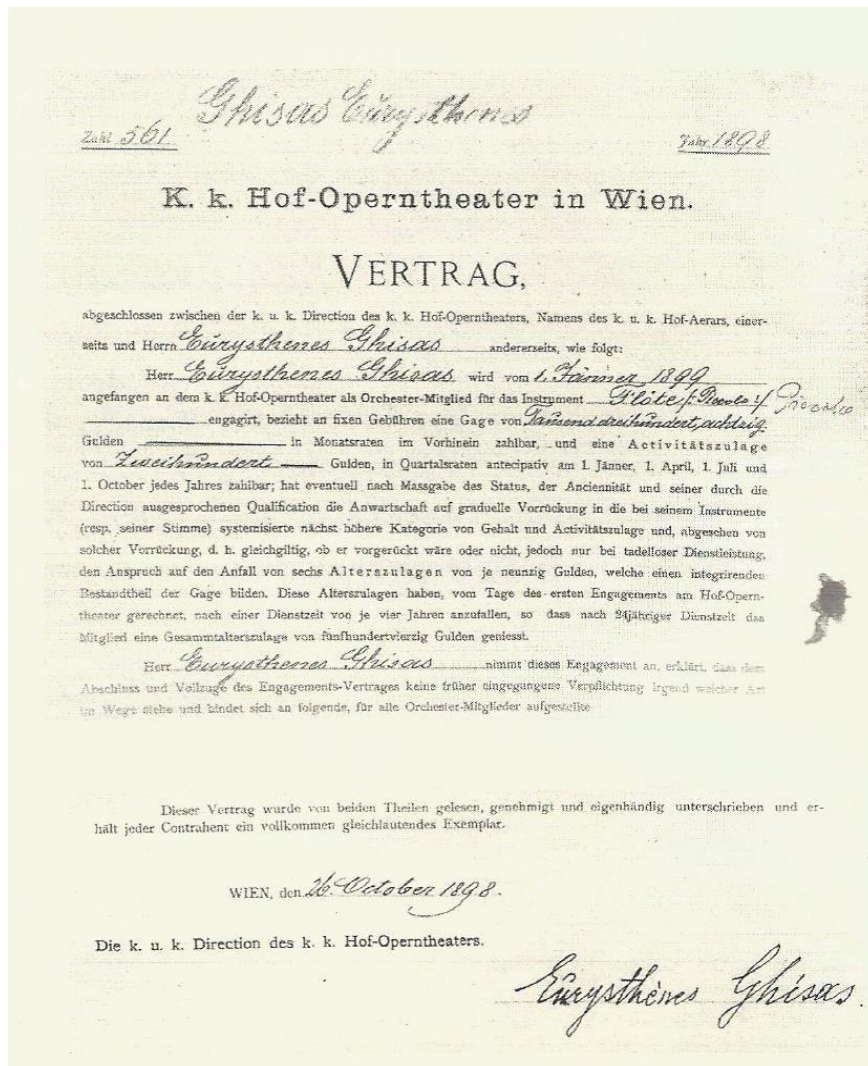 Ghisas Eurysthenes
Zahl 561. Jahr 1898
K. k. Hof-Operntheater in Wien.
VERTRAG,
abgeschlossen zwischen der k. u. k. Direction des k. k. Hof-Operntheaters, Namens des k. u. k. Hof-Aerars, einer-
seits und Herrn Eurysthenes Ghisas andererseits, wie folgt:
Herr Eurysthenes Ghisas wird vom 1. Jänner 1899
angefangen an dem k. k. Hof-Operntheater als Orchester-Mitglied für das Instrument Flöte /: Piccolo :/ Piccolo
engagirt, bezieht an fixen Gebühren eine Gage von Tausend dreihundert achtzig
Gulden in Monatsraten im Vorhinein zahlbar, und eine Activitätszulage
von Zweihundert Gulden, in Quartalsraten antecipativ am 1. Jänner, 1. April, 1. Juli und
1. October jedes Jahres zahlbar; hat eventuell nach Massgabe des Status, der Anciennität und seiner durch die
Direction ausgesprochenen Qualification die Anwartschaft auf graduelle Vorrückung in die bei seinem Instrumente
(resp. seiner Stimme) systemisierte nächst höhere Kategorie von Gehalt und Activitätszulage und, abgesehen von
solcher Vorrückung, d. h. gleichgiltig, ob er vorgerückt wäre oder nicht, jedoch nur bei tadelloser Dienstleistung,
den Anspruch auf den Anfall von sechs Alterszulagen von je neunzig Gulden, welche einen integrirenden
Bestandtheil der Gage bilden. Diese Alterszulagen haben, vom Tage des ersten Engagements am Hof-Opern-
theater gerechnet, nach einer Dienstzeit von je vier Jahren anzufallen, so dass nach 24jähriger Dienstzeit das
Mitglied eine Gesammtalterszulage von fünfhundertvierzig Gulden geniesst.
Herr Eurysthenes Ghisas nimmt dieses Engagement an, erklärt, dass dem
Abschluss und Vollzuge des Engagements-Vertrages keine früher eingegangene Verpflichtung irgend welcher Art
im Wege stehe und bindet sich an folgende, für alle Orchester-Mitglieder aufgestellte
Dieser Vertrag wurde von beiden Theilen gelesen, genehmigt und eigenhändig unterschrieben und er-
hält jeder Contrahent ein vollkommen gleichlautendes Exemplar.
WIEN, den 26. October 1898.
Die k. u. k. Direction des k. k. Hof-Operntheaters.
Eurysthènes Ghisas.